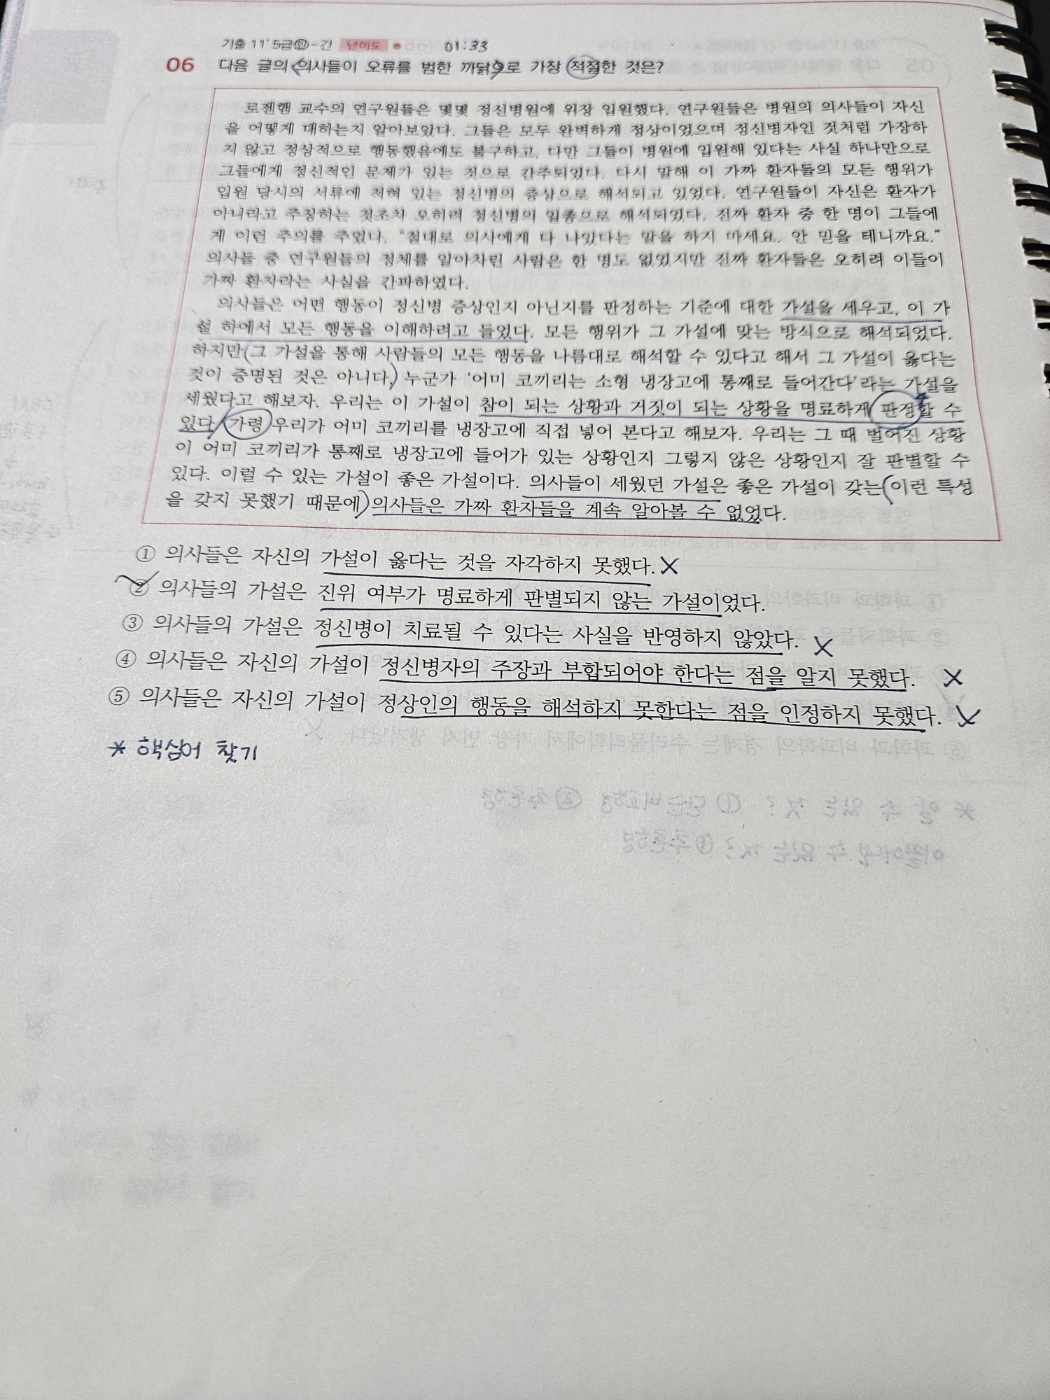 기출 11' 5급㉑-간 난이도 ● 01:33
06 다음 글의 의사들이 오류를 범한 까닭으로 가장 적절한 것은?
로젠햄 교수의 연구원들은 몇몇 정신병원에 위장 입원했다. 연구원들은 병원의 의사들이 자신
을 어떻게 대하는지 알아보았다. 그들은 모두 완벽하게 정상이었으며 정신병자인 것처럼 가장하
지 않고 정상적으로 행동했음에도 불구하고, 다만 그들이 병원에 입원해 있다는 사실 하나만으로
그들에게 정신적인 문제가 있는 것으로 간주되었다. 다시 말해 이 가짜 환자들의 모든 행위가
입원 당시의 서류에 적혀 있는 정신병의 증상으로 해석되고 있었다. 연구원들이 자신은 환자가
아니라고 주장하는 것조차 오히려 정신병의 일종으로 해석되었다. 진짜 환자 중 한 명이 그들에
게 이런 주의를 주었다. "절대로 의사에게 다 나았다는 말을 하지 마세요. 안 믿을 테니까요."
의사들 중 연구원들의 정체를 알아차린 사람은 한 명도 없었지만 진짜 환자들은 오히려 이들이
가짜 환자라는 사실을 간파하였다.
의사들은 어떤 행동이 정신병 증상인지 아닌지를 판정하는 기준에 대한 가설을 세우고, 이 가
설 하에서 모든 행동을 이해하려고 들었다. 모든 행위가 그 가설에 맞는 방식으로 해석되었다.
하지만 그 가설을 통해 사람들의 모든 행동을 나름대로 해석할 수 있다고 해서 그 가설이 옳다는
것이 증명된 것은 아니다. 누군가 '어미 코끼리는 소형 냉장고에 통째로 들어간다'라는 가설을
세웠다고 해보자. 우리는 이 가설이 참이 되는 상황과 거짓이 되는 상황을 명료하게 판정할 수
있다. 가령 우리가 어미 코끼리를 냉장고에 직접 넣어 본다고 해보자. 우리는 그 때 벌어진 상황
이 어미 코끼리가 통째로 냉장고에 들어가 있는 상황인지 그렇지 않은 상황인지 잘 판별할 수
있다. 이럴 수 있는 가설이 좋은 가설이다. 의사들이 세웠던 가설은 좋은 가설이 갖는 이런 특성
을 갖지 못했기 때문에 의사들은 가짜 환자들을 계속 알아볼 수 없었다.
① 의사들은 자신의 가설이 옳다는 것을 자각하지 못했다. X
② 의사들의 가설은 진위 여부가 명료하게 판별되지 않는 가설이었다.
③ 의사들의 가설은 정신병이 치료될 수 있다는 사실을 반영하지 않았다. X
④ 의사들은 자신의 가설이 정신병자의 주장과 부합되어야 한다는 점을 알지 못했다. X
⑤ 의사들은 자신의 가설이 정상인의 행동을 해석하지 못한다는 점을 인정하지 못했다. X
* 핵심어 찾기